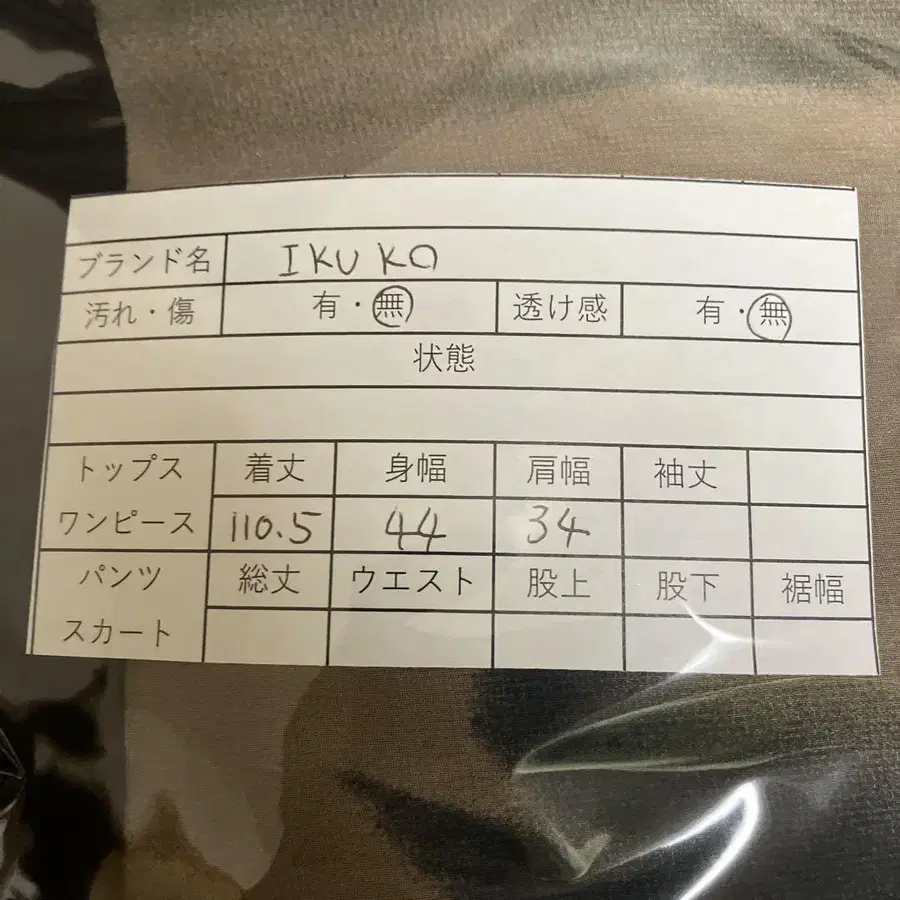 ブランド名 IKUKO
汚れ・傷 有・無 透け感 有・無
状態
トップス 着丈 身幅 肩幅 袖丈
ワンピース 110.5 44 34
パンツ 総丈 ウエスト 股上 股下 裾幅
スカート